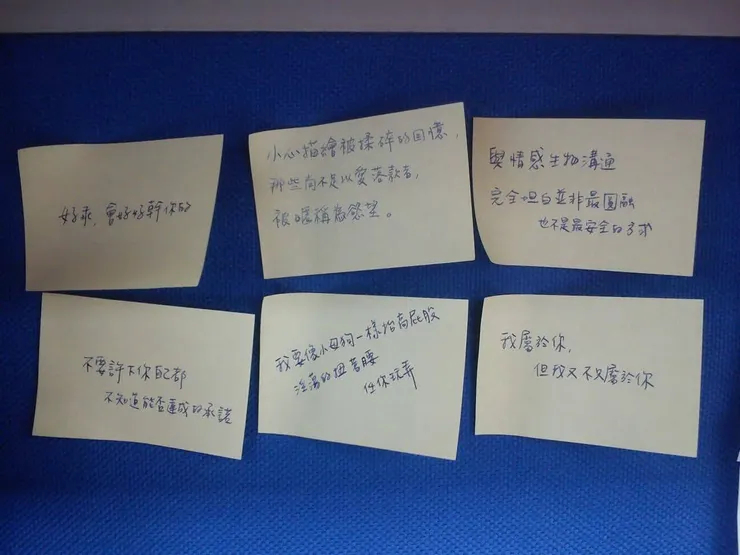 好乖，會好好幹你的
小心描繪被揉碎的回憶，
那些尚不足以愛落款者，
被喂稱為慾望。
與情感生物溝通
完全坦白並非最圓融
也不是最安全的方式
不要許下你自己都
不知道能否達成的承諾
我要像小母狗一樣抬高屁股
淫蕩的扭著腰
任你玩弄
我屬於你，
但我又不只屬於你